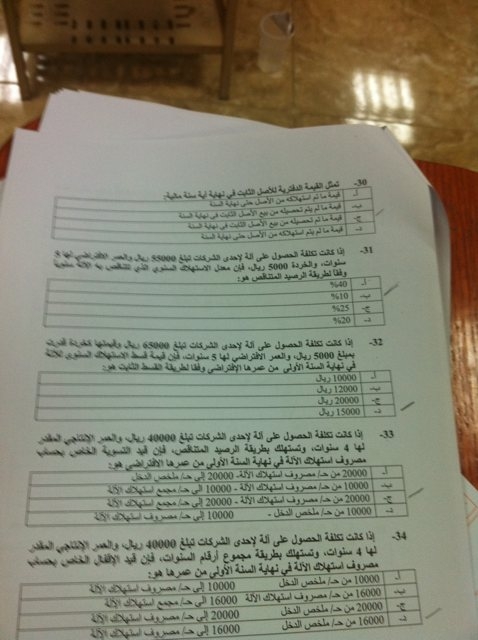 30- تمثل القيمة الدفترية للأصل الثابت في نهاية أية سنة مالية:
أ- قيمة ما تم استهلاكه من الأصل حتى نهاية السنة
ب- قيمة ما لم يتم تحصيله من بيع الأصل الثابت في نهاية السنة
ج- قيمة ما تم تحصيله من بيع الأصل الثابت في نهاية السنة
د- قيمة ما لم يتم استهلاكه من الأصل حتى نهاية السنة
31- إذا كانت تكلفة الحصول على آلة لإحدى الشركات تبلغ 55000 ريال والعمر الافتراضي لها 5
سنوات، والخردة 5000 ريال، فإن معدل الاستهلاك السنوي الذي تتناقص به الآلة سنوية
وفقا لطريقة الرصيد المتناقص هو:
أ- 40%
ب- 10%
ج- 25%
د- 20%
32- إذا كانت تكلفة الحصول على آلة لإحدى الشركات تبلغ 65000 ريال وقيمتها كخردة قدرت
بمبلغ 5000 ريال، والعمر الافتراضي لها 5 سنوات، فإن قيمة قسط الاستهلاك السنوي للآلة
في نهاية السنة الأولى من عمرها الإفتراضي وفقا لطريقة القسط الثابت هو:
أ- 10000 ريال
ب- 12000 ريال
ج- 20000 ريال
د- 15000 ريال
33- إذا كانت تكلفة الحصول على آلة لإحدى الشركات تبلغ 40000 ريال، والعمر الإنتاجي المقدر
لها 4 سنوات، وتستهلك بطريقة الرصيد المتناقص، فإن قيد التسوية الخاص بحساب
مصروف استهلاك الآلة في نهاية السنة الأولى من عمرها الأفتراضي هو:
أ- 20000 من حـ/ مصروف استهلاك الآلة- 20000 إلى حـ/ ملخص الدخل
ب- 10000 من حـ/ مصروف استهلاك الآلة - 10000 الى حـ/ مجمع استهلاك الآلة
ج- 20000 من حـ/ مصروف استهلاك الآلة - 20000 إلى حـ/ مجمع استهلاك الآلة
د- 10000 من حـ/ ملخص الدخل - 10000 إلى حـ/ مصروف استهلاك الآلة
34- إذا كانت تكلفة الحصول على آلة لإحدى الشركات تبلغ 40000 ريال، والعمر الإنتاجي المقدر
لها 4 سنوات، وتستهلك بطريقة مجموع أرقام السنوات، فإن قيد الإقفال الخاص بحساب
مصروف استهلاك الآلة في نهاية السنة الأولى من عمرها هو:
أ- 10000 من حـ/ ملخص الدخل 10000 إلى حـ/ مصروف استهلاك الآلة
ب- 16000 من حـ/ مصروف استهلاك الآلة 16000 الى حـ/ مجمع استهلاك الآلة
ج- 20000 من حـ/ ملخص الدخل 20000 إلى حـ/ مصروف استهلاك الآلة
د- 16000 من حـ/ ملخص الدخل 16000 إلى حـ/ مصروف استهلاك الآلة